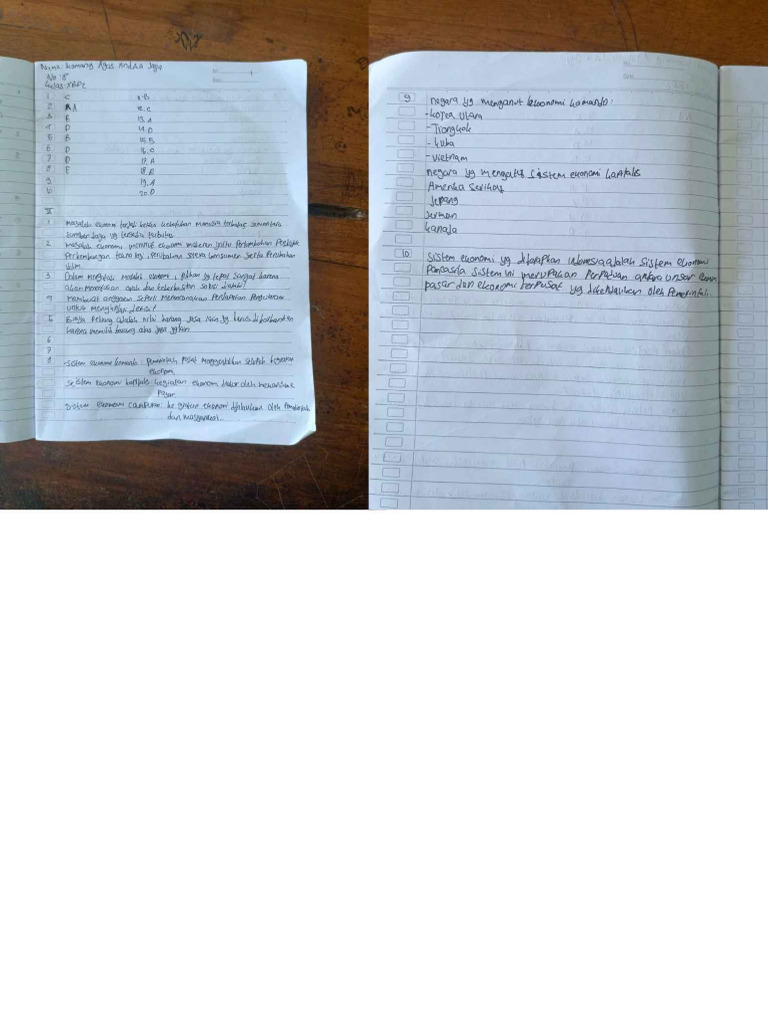 Nama: Komang Agus Andika Jaya
No : 8
Kelas: X
1 C 11. B
2 A 12. C
3 E 13. A
4 D 14. D
5 B 15. B
6 D 16. C
7 D 17. A
8 E 18. E
9 19. A
10 20. D
II
1 Masalah ekonomi terjadi ketika kebutuhan manusia terbatas sementara
sumber daya yg tersedia terbatas
2 Masalah ekonomi menurut ekonomi makeren yaitu Pertumbuhan
Perkembangan, Perubahan selera konsumen serta Perubahan
iklim
3 Dalam mengatasi masalah ekonomi, pilihan yg tepat sangat karena
akan menentukan
4 Membuat anggaran seperti merencanakan Pendapatan Pengeluaran
untuk
5 Biaya Peluang adalah nilai barang jasa lain yg harus di korbankan
karena memilih barang atau jasa
6
7
8 -Sistem ekonomi komando: Pemerintah Pusat seluruh kegiatan
ekonomi
Sistem ekonomi kapitalis kegiatan ekonomi diatur oleh mekanisme
Pasar
Sistem ekonomi campuran: ekonomi dilakukan oleh Pemerintah
dan masyarakat..
9 negara yg menganut ekonomi komando:
-Korea Utara
-Tiongkok
-Kuba
-Vietnam
negara yg sistem ekonomi kapitalis
Amerika Serikat
Jepang
Jerman
kanada
10 Sistem ekonomi yg diterapkan indonesia adalah sistem ekonomi
Pancasila sistem ini merupakan Perpaduan antara unsur
pasar dan ekonomi terpusat yg dikendalikan oleh Pemerintah.